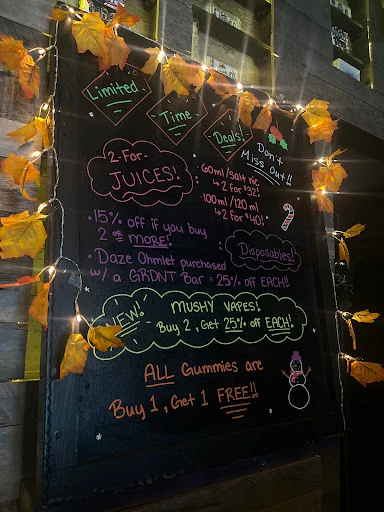 Limited
Time
Deals!
Don't
Miss Out!!
2-For-
JUICES!
• 60ml/Salt nic
↳ 2 for $32!
• 100ml/120ml
↳ 2 for $40!
• 15% off if you buy
2 or MORE!
Disposables!
• Daze Ohmlet purchased
w/ a GRDNT Bar = 25% off EACH!
NEW!
MUSHY VAPES!
Buy 2, Get 25% off EACH!
ALL Gummies are
Buy 1, Get 1 FREE!!